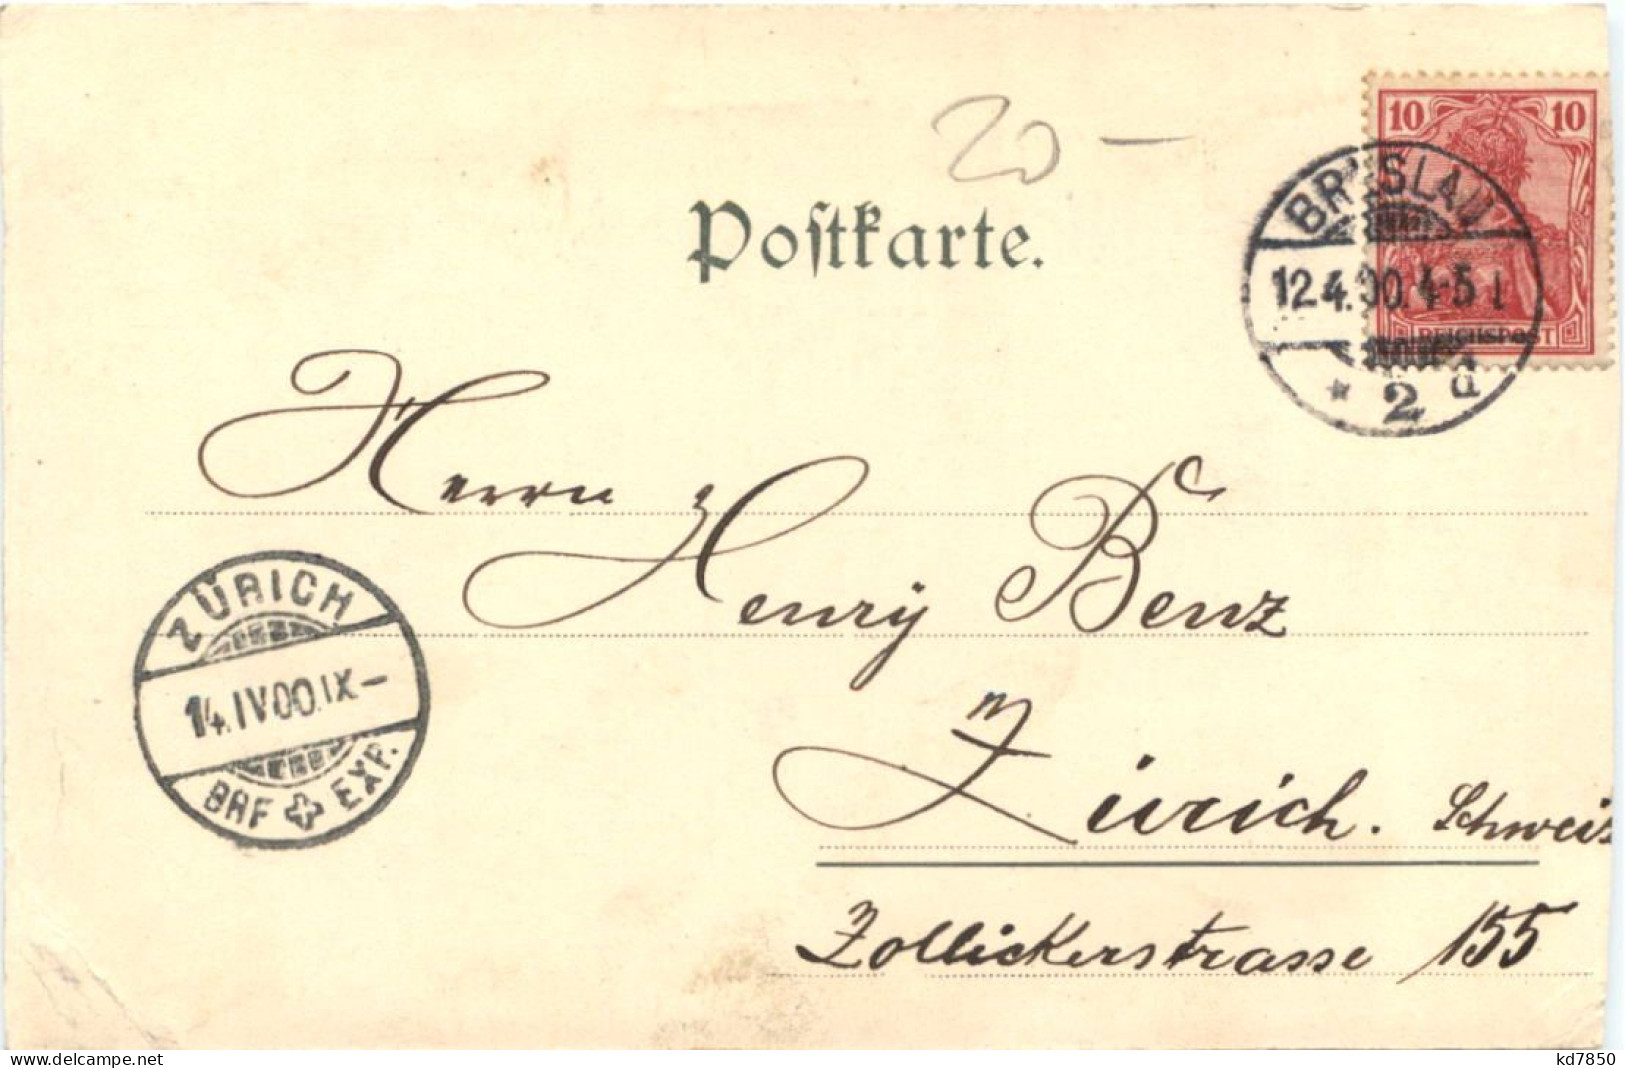 20 –
Postkarte.
10 10
REICHSPOST
BRESLAU
12.4.00.4-5 N
* 2 d
Herrn
Henry Benz
Zürich. Schweiz
Zollickerstrasse 155
ZÜRICH
14.IV00.IX–
BRF EXP.
www.delcampe.net
kd7850